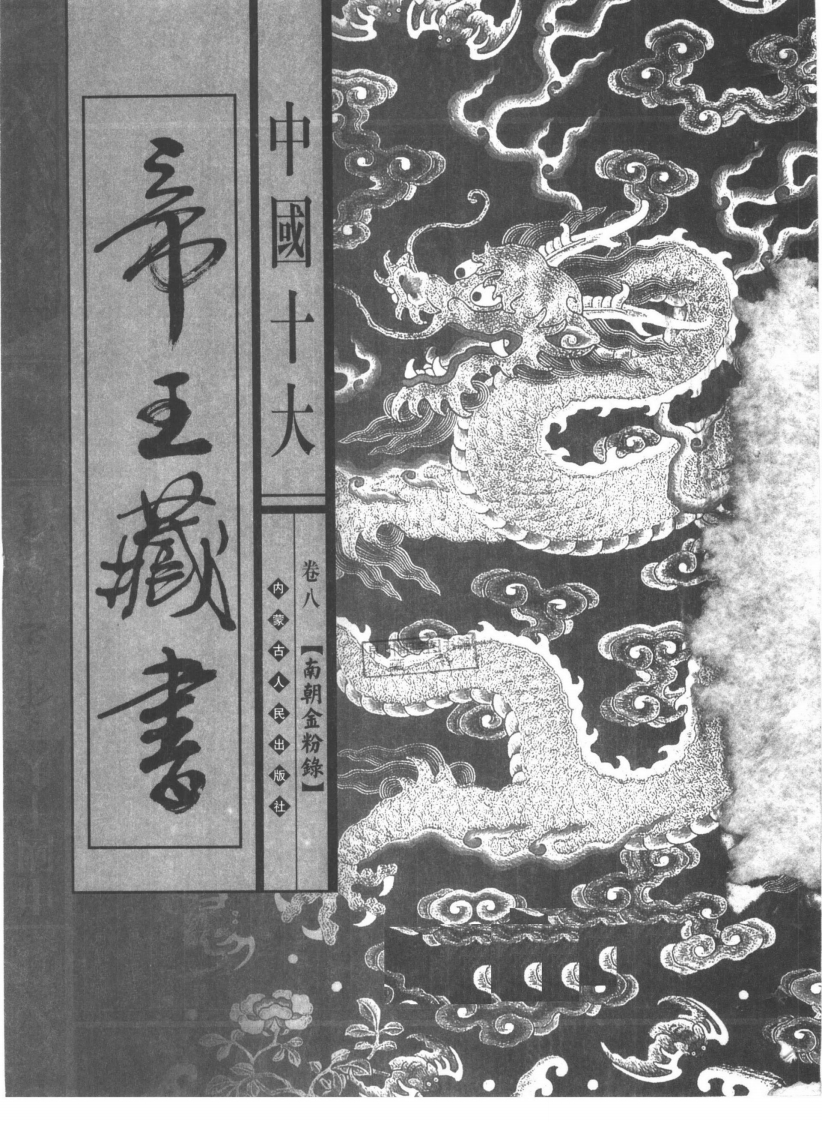 中國十大
帝王藏書
卷八
【南朝金粉錄】
内蒙古人民出版社